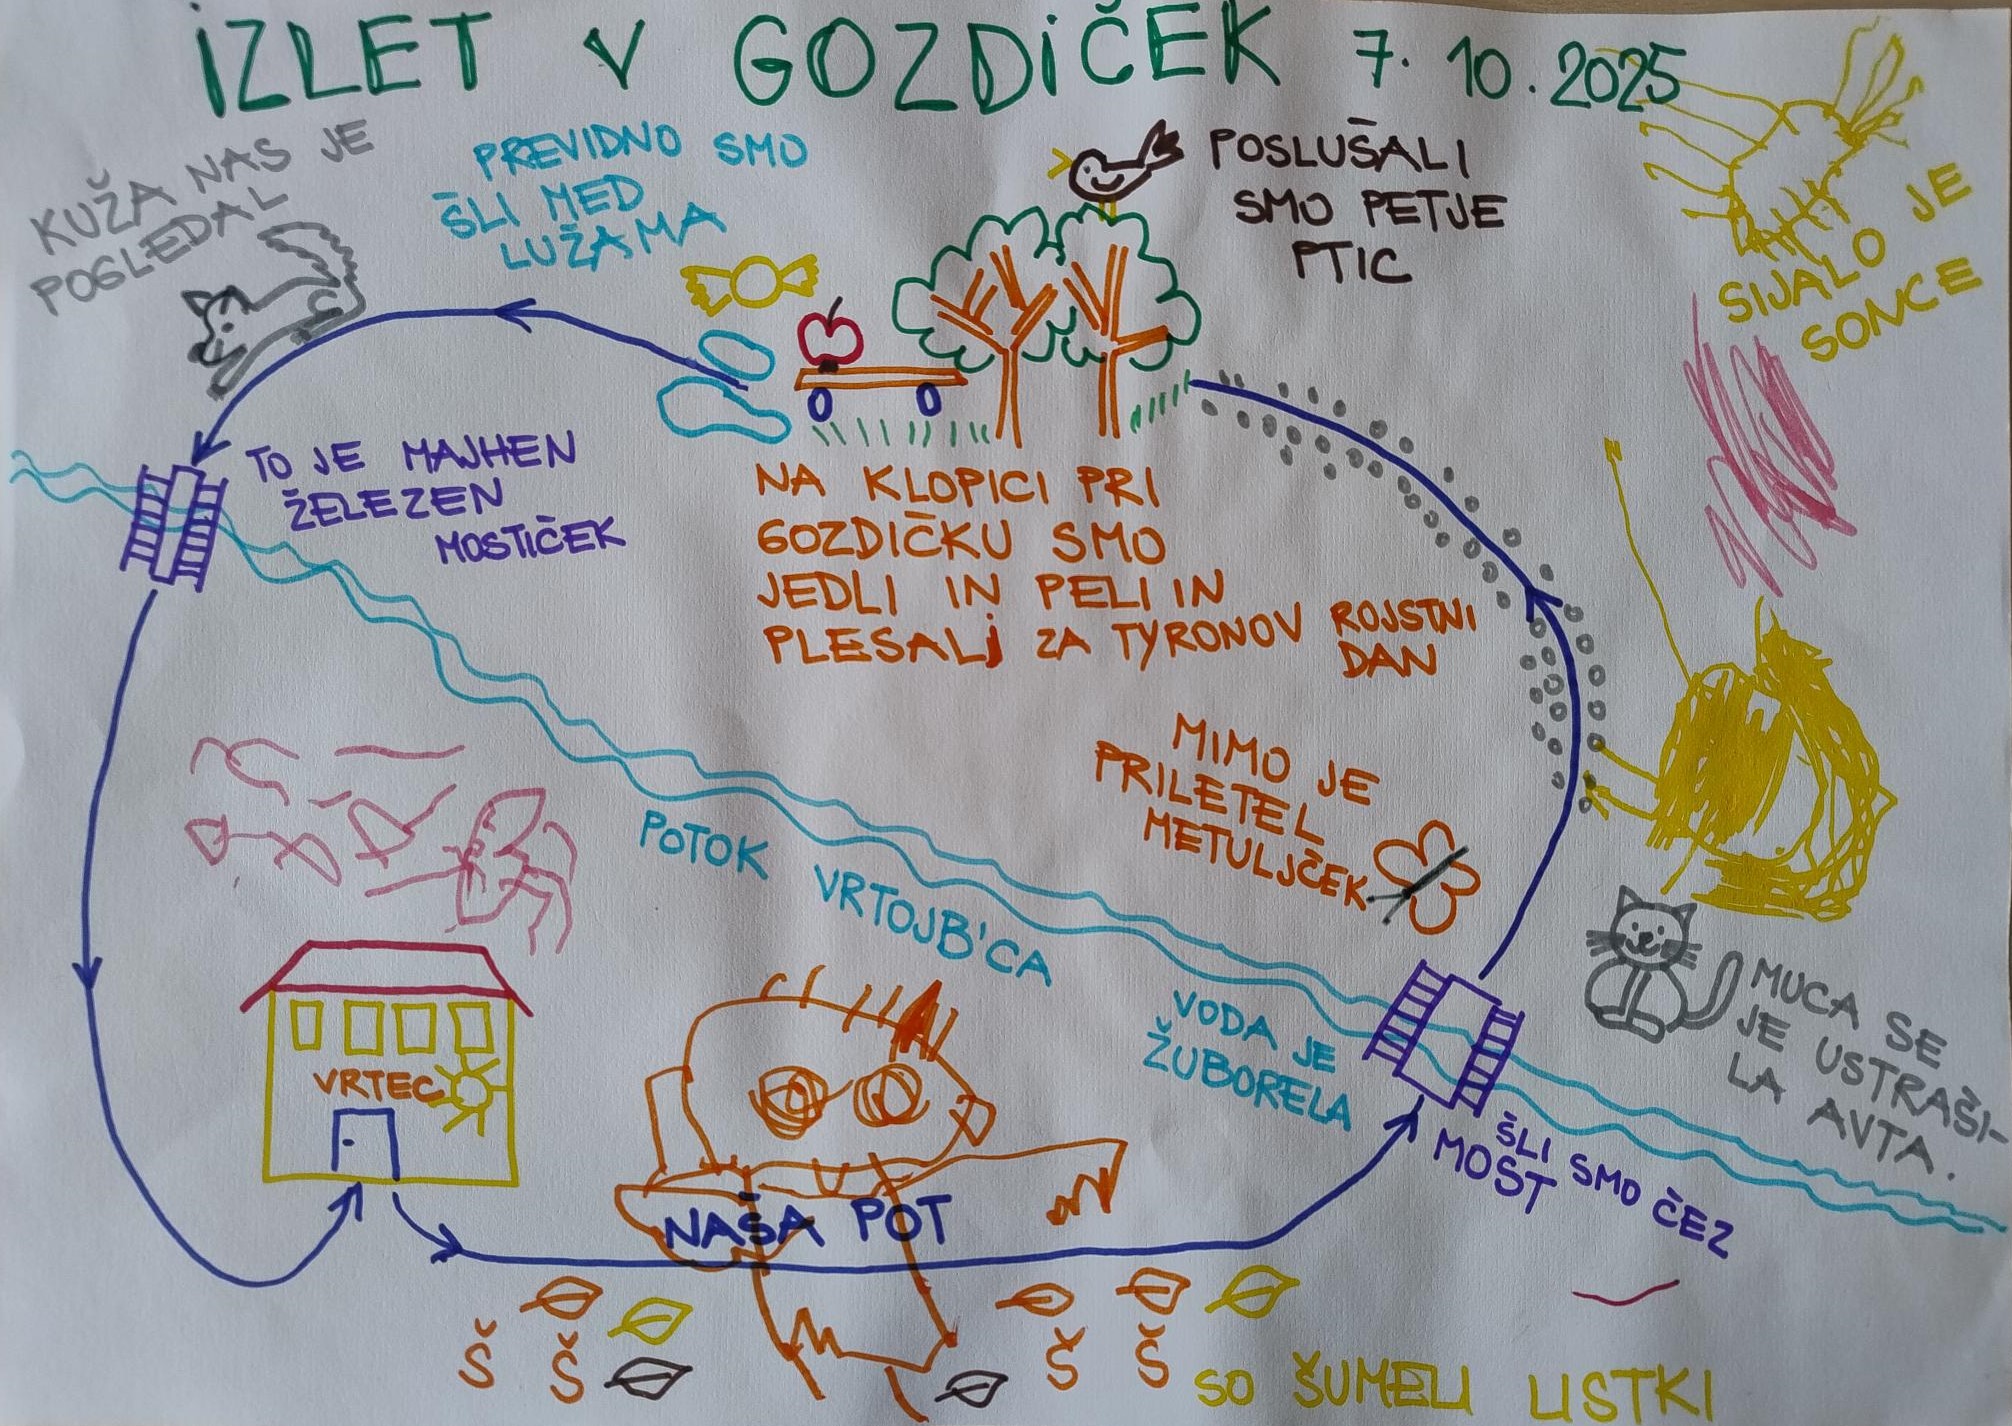 IZLET V GOZDIČEK 7. 10. 2025
KUŽA NAS JE
POSLEDAL
PREVIDNO SMO
ŠLI MED
LUŽAMA
POSLUŠALI
SMO PETJE
PTIC
SIJALO JE
SONCE
TO JE MAJHEN
ŽELEZEN
MOSTIČEK
NA KLOPICI PRI
GOZDIČKU SMO
JEDLI IN PELI IN
PLESALI ZA TYRONOV ROJSTNI
DAN
MIMO JE
PRILETEL
METULJČEK
POTOK VRTOJB'CA
VODA JE
ŽUBORELA
MUCA SE
JE USTRAŠI-
LA AVTA.
ŠLI SMO ČEZ
MOST
VRTEC
NAŠA POT
Š Š Š Š SO ŠUMELI LISTKI